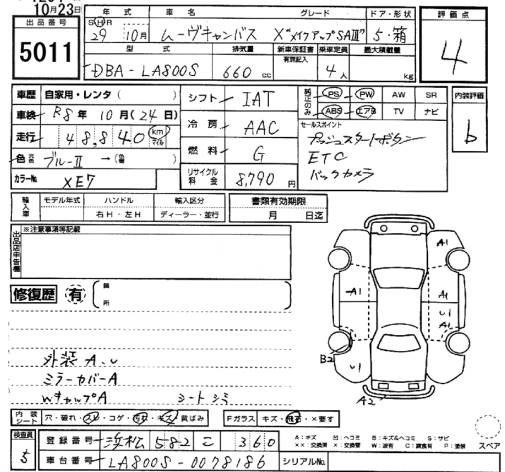 10月23日
出品番号
5011
年式 車名 グレード ドア・形状 評価点
S H R
29 10月 ムーヴキャンバス X"メイクアップSAⅢ" 5・箱 4
型式 排気量 新車保証書 乗車定員 最大積載量
有無記入
DBA-LA800S 660 cc 4人 kg
車歴 自家用・レンタ( )
車検 R8年10月(24日)
走行 48,840 km マイル
色 ブルーⅡ → (色替)
カラーNo. XE7
シフト IAT
冷房 AAC
燃料 G
リサイクル料金 8,790円
PS PW AW SR
ABS エアB TV ナビ
セールスポイント
プッシュスタートボタン
ETC
バックカメラ
内装評価
b
輸入車 モデル年式 ハンドル 輸入区分 書類有効期限
右H・左H ディーラー・並行 月 日迄
出品店申告欄
※注意事項等記載
修復歴 有 箇所
外装A.U
ミラーカバーA
WキャップA シートシミ
A1
A1 A1
U1
A1
B2 U1 U1
A2
内装シート 穴・破れ・スレ・コゲ・汚れ・キズ・黄ばみ Fガラス キズ・飛石・×要す
検査員
5
登録番号 浜松 582 こ 360
車台番号 LA800S-0078186 シリアルNo.
A:キズ U:ヘコミ B:キズ&ヘコミ S:サビ
××:交換済 ×:要交換 W:波 C:腐食有 P:塗装
スペア